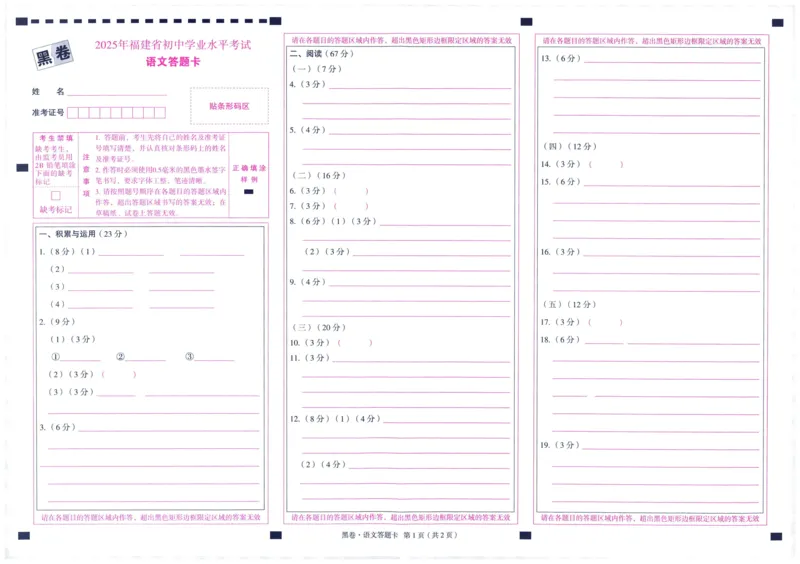 黑卷
2025年福建省初中学业水平考试
语文答题卡
姓 名
准考证号
贴条形码区
考生禁填
缺考考生,
由监考员用
2B 铅笔填涂
下面的缺考
标记
缺考标记
注意事项
1. 答题前,考生先将自己的姓名及准考证
号填写清楚,并认真核对条形码上的姓名
及准考证号。
2. 作答时必须使用0.5毫米的黑色墨水签字
笔书写,要求字体工整、笔迹清晰。
3. 请按照题号顺序在各题目的答题区域内
作答,超出答题区域书写的答案无效;在
草稿纸、试卷上答题无效。
正确填涂
样例
一、积累与运用(23分)
1.(8分)(1)
(2)
(3)
(4)
2.(9分)
(1)(3分)
① ② ③
(2)(3分)( )
(3)(3分)
3.(6分)
请在各题目的答题区域内作答,超出黑色矩形边框限定区域的答案无效
请在各题目的答题区域内作答,超出黑色矩形边框限定区域的答案无效
二、阅读(67分)
(一)(7分)
4.(3分)
5.(4分)
(二)(16分)
6.(3分)( )
7.(3分)( )
8.(6分)(1)(3分)
(2)(3分)
9.(4分)
(三)(20分)
10.(3分)( )
11.(3分)
12.(8分)(1)(4分)
(2)(4分)
请在各题目的答题区域内作答,超出黑色矩形边框限定区域的答案无效
请在各题目的答题区域内作答,超出黑色矩形边框限定区域的答案无效
13.(6分)
(四)(12分)
14.(3分)( )
15.(6分)
16.(3分)
(五)(12分)
17.(3分)( )
18.(6分)
19.(3分)
请在各题目的答题区域内作答,超出黑色矩形边框限定区域的答案无效
黑卷·语文答题卡 第1页(共2页)